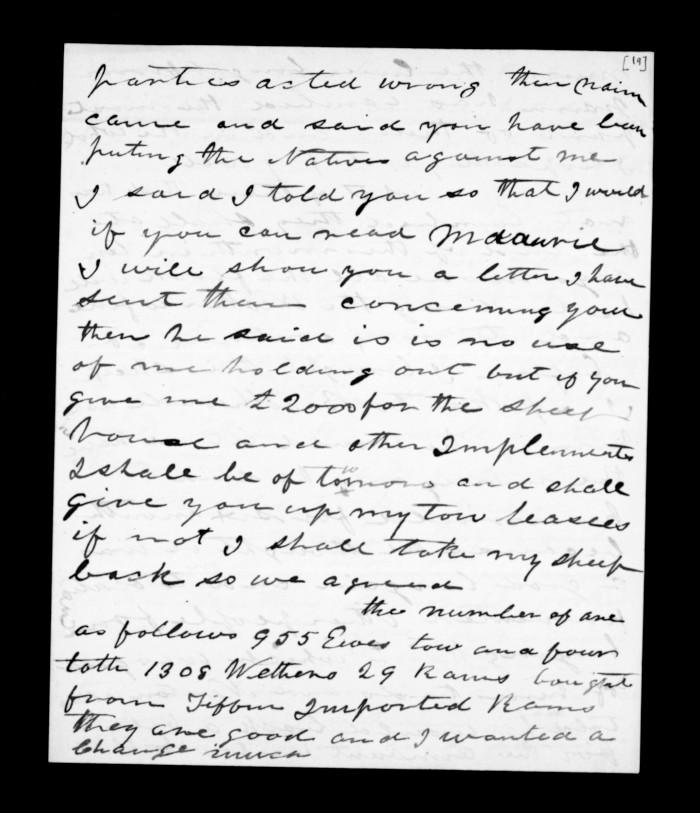 [19]
parties acted wrong then Nairn
came and said you have been
puting the Natives against me
I said I told you so that I would
if you can read Maaurie
I will show you a letter I have
sent them concerning your
then he said is is no use
of me holding out but if you
give me £2000 for the sheep
house and other Implements
I shall be of tomoro and shall
give you up my tow leases
if not I shall take my sheep
back so we agreed
the number of are
as follows 955 Ewes tow and four
toth 1308 Wethers 29 Rams bought
from Tiffen Imported Rams
they are good and I wanted a
change much